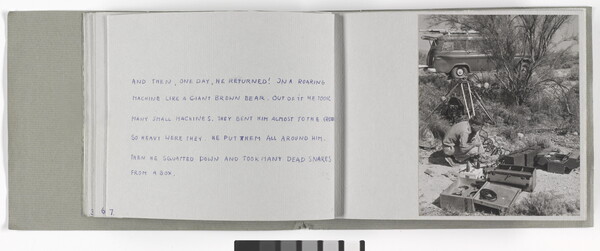 AND THEN, ONE DAY, HE RETURNED! IN A ROARING
MACHINE LIKE A GIANT BROWN BEAR. OUT OF IT HE TOOK
MANY SMALL MACHINES. THEY BENT HIM ALMOST TO THE GROUND
SO HEAVY WERE THEY. HE PUT THEM ALL AROUND HIM.
THEN HE SQUATTED DOWN AND TOOK MANY DEAD SNAKES
FROM A BOX.